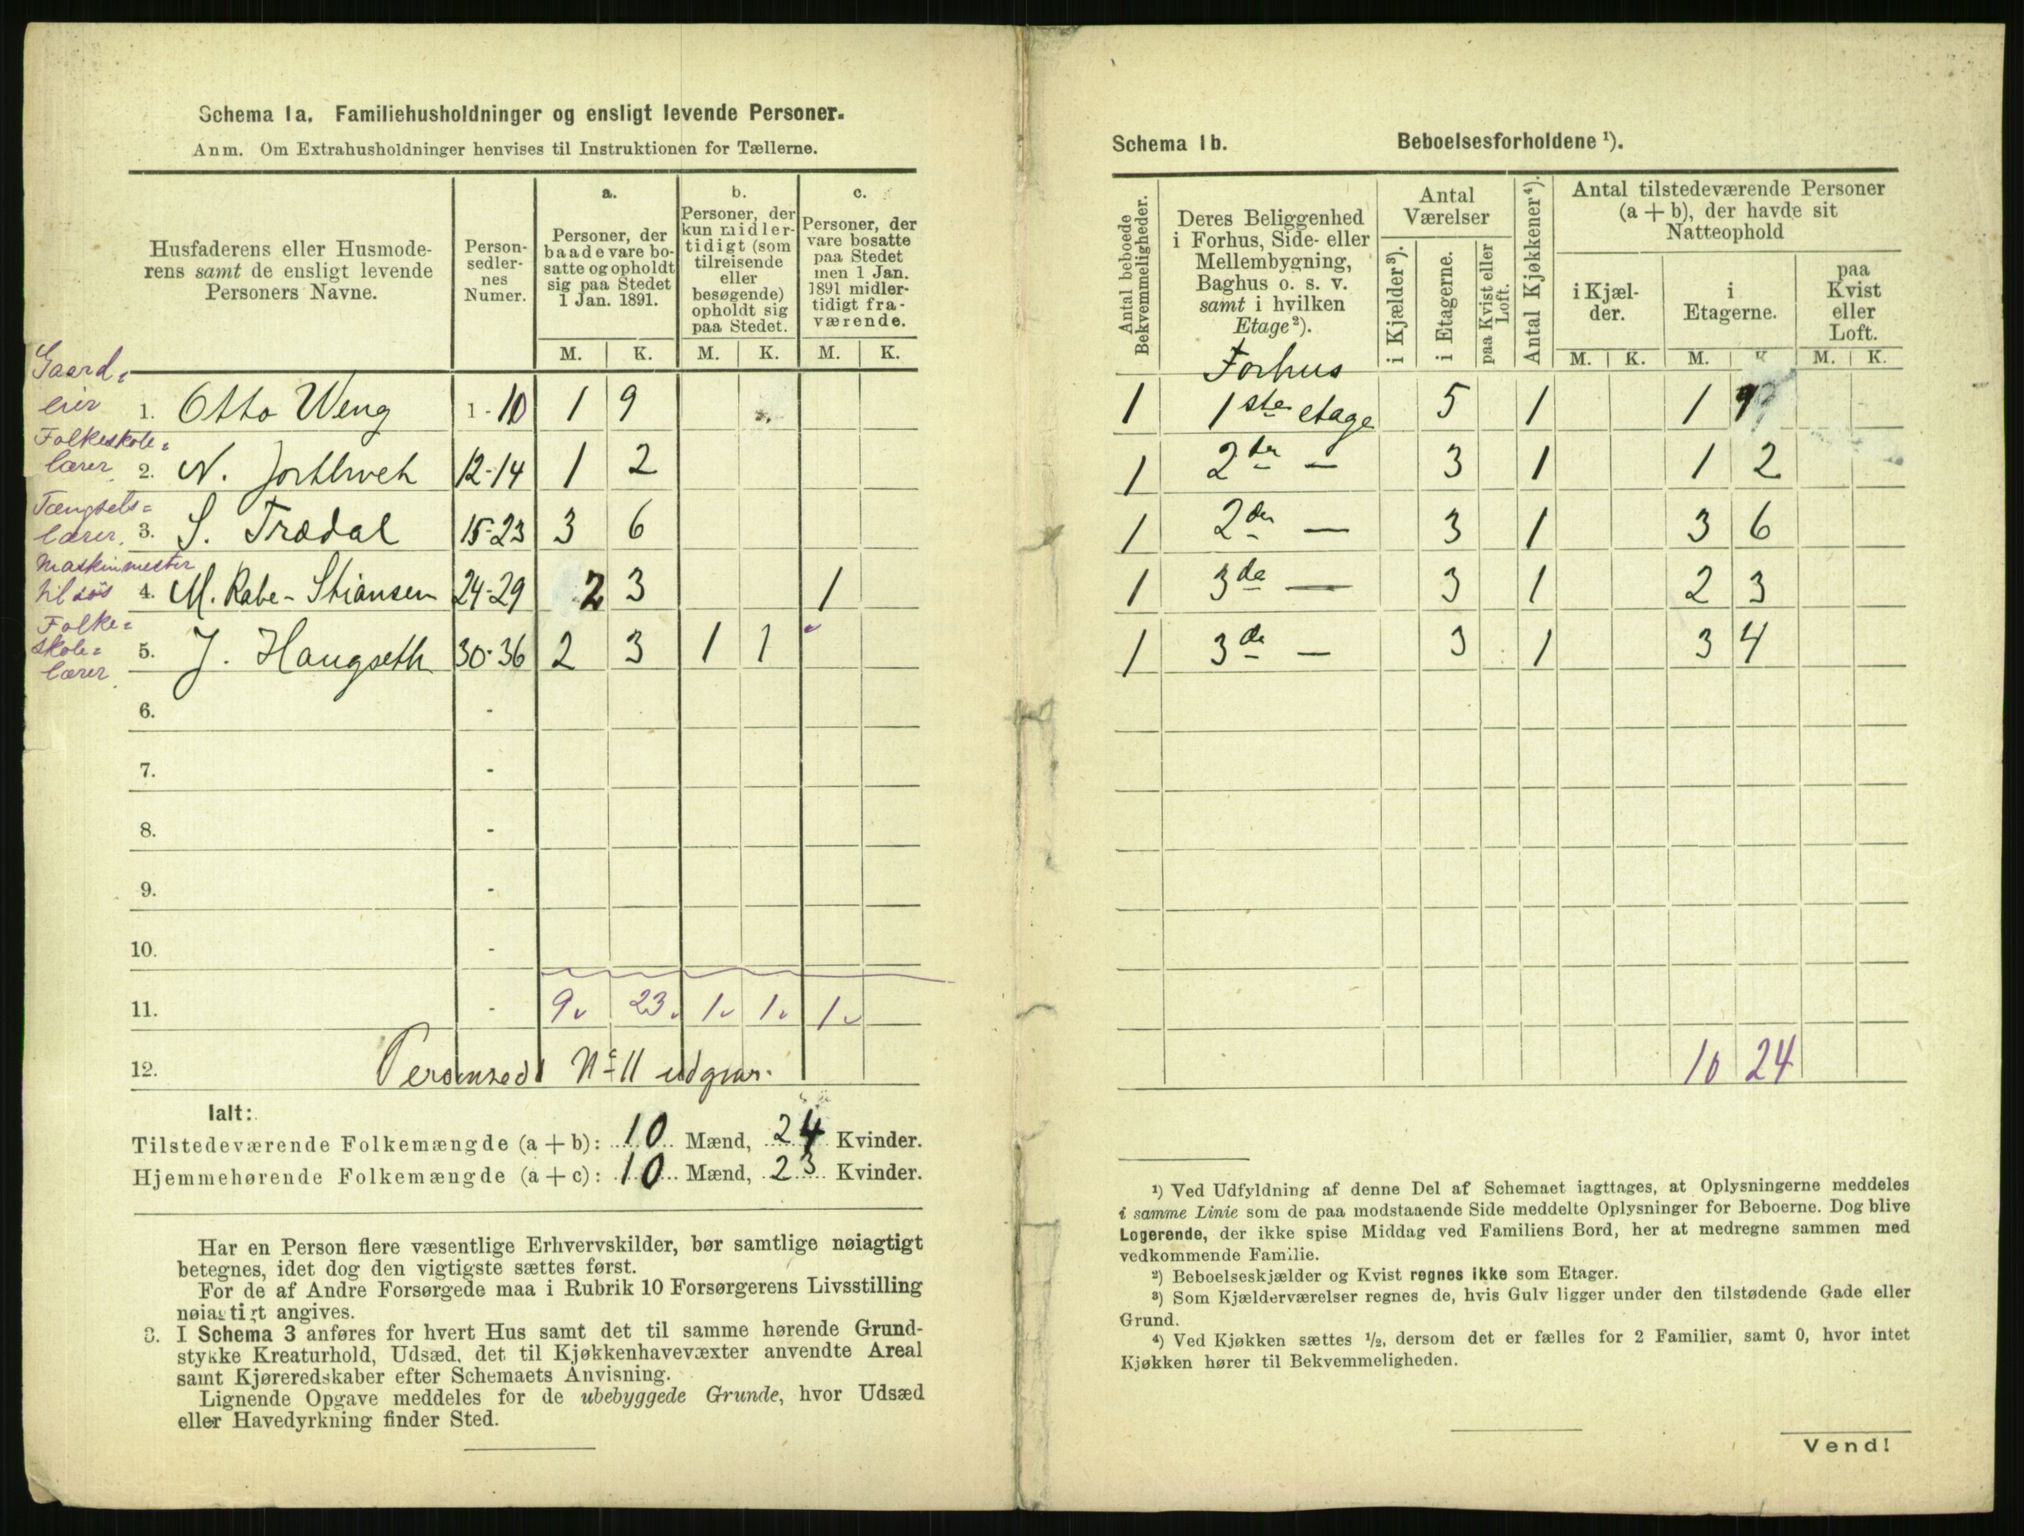 Schema 1a. Familiehusholdninger og ensligt levende Personer.
Anm. Om Extrahusholdninger henvises til Instruktionen for Tællerne.
Husfaderens eller Husmode-
rens samt de ensligt levende
Personers Navne.
Person-
sedler-
nes
Numer.
a.
Personer, der
baade vare bo-
satte og opholdt
sig paa Stedet
1 Jan. 1891.
b.
Personer, der
kun midler-
tidigt (som
tilreisende
eller
besøgende)
opholdt sig
paa Stedet.
c.
Personer, der
vare bosatte
paa Stedet
men 1 Jan.
1891 midler-
tidigt fra-
værende.
M. K. M. K. M. K.
Gaard=
eier
1. Otto Weng 1-10 1 9
Folkeskole=
lærer
2. N. 12-14 1 2
Fængsels=
lærer.
3. S. Trædal 15-23 3 6
Maskinmester
til søs
4. M. Rabe-Stiansen 24-29 2 3 1
Folke=
skole=
lærer
5. J. Haugseth 30-36 2 3 1 1
6. -
7. -
8. -
9. -
10. -
11. - 9 23 1 1 1
12. Personsed N° 11 udgaar.
Ialt:
Tilstedeværende Folkemængde (a + b): 10 Mænd, 24 Kvinder.
Hjemmehørende Folkemængde (a + c): 10 Mænd, 23 Kvinder.
Har en Person flere væsentlige Erhvervskilder, bør samtlige nøiagtigt
betegnes, idet dog den vigtigste sættes først.
For de af Andre Forsørgede maa i Rubrik 10 Forsørgerens Livsstilling
nøiagtigt angives.
3. I Schema 3 anføres for hvert Hus samt det til samme hørende Grund-
stykke Kreaturhold, Udsæd, det til Kjøkkenhavevæxter anvendte Areal
samt Kjøreredskaber efter Schemaets Anvisning.
Lignende Opgave meddeles for de ubebyggede Grunde, hvor Udsæd
eller Havedyrkning finder Sted.
Schema 1b. Beboelsesforholdene ¹).
Antal beboede
Bekvemmeligheder.
Deres Beliggenhed
i Forhus, Side- eller
Mellembygning,
Baghus o. s. v.
samt i hvilken
Etage ²).
Antal
Værelser
i Kjælder ³).
i Etagerne.
paa Kvist eller
Loft.
Antal Kjøkkener ⁴).
Antal tilstedeværende Personer
(a + b), der havde sit
Natteophold
i Kjæl-
der.
i
Etagerne.
paa
Kvist
eller
Loft.
M. K. M. K. M. K.
Forhus
1 1ste etage 5 1 1 9
1 2den — 3 1 1 2
1 2den — 3 1 3 6
1 3de — 3 1 2 3
1 3de — 3 1 3 4
10 24
¹) Ved Udfyldning af denne Del af Schemaet iagttages, at Oplysningerne meddeles
i samme Linie som de paa modstaaende Side meddelte Oplysninger for Beboerne. Dog blive
Logerende, der ikke spise Middag ved Familiens Bord, her at medregne sammen med
vedkommende Familie.
²) Beboelseskjælder og Kvist regnes ikke som Etager.
³) Som Kjælderværelser regnes de, hvis Gulv ligger under den tilstødende Gade eller
Grund.
⁴) Ved Kjøkken sættes ½, dersom det er fælles for 2 Familier, samt 0, hvor intet
Kjøkken hører til Bekvemmeligheden.
Vend!